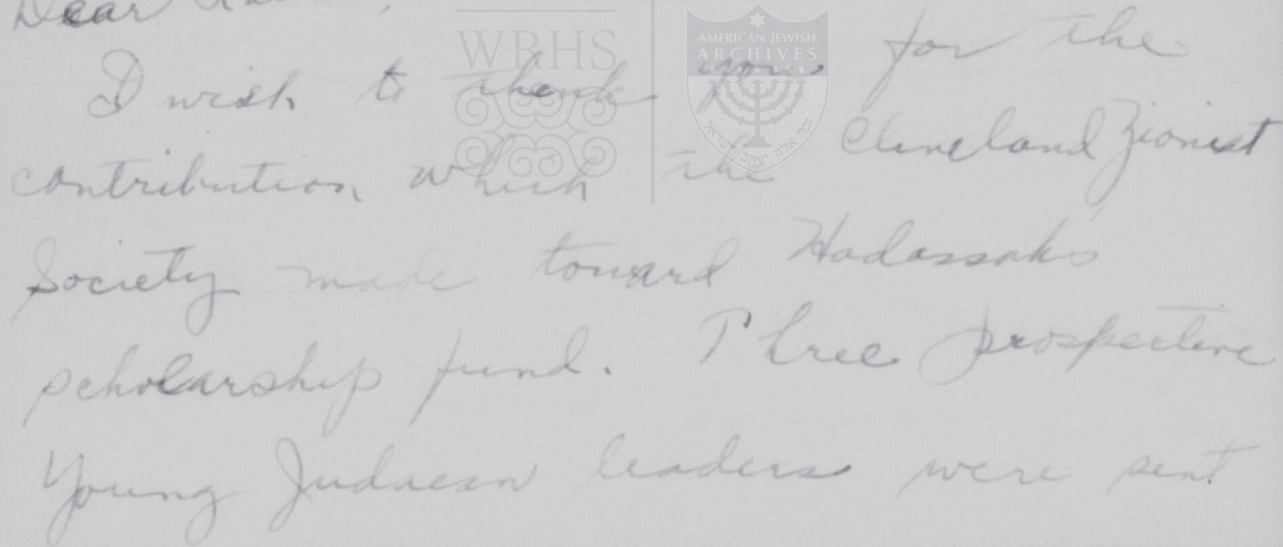 Dear
WRHS
AMERICAN JEWISH
ARCHIVES
I wish to thank you for the
contribution which the Cleveland Zionist
Society made toward Hadassah's
scholarship fund. Three prospective
Young Judaean leaders were sent